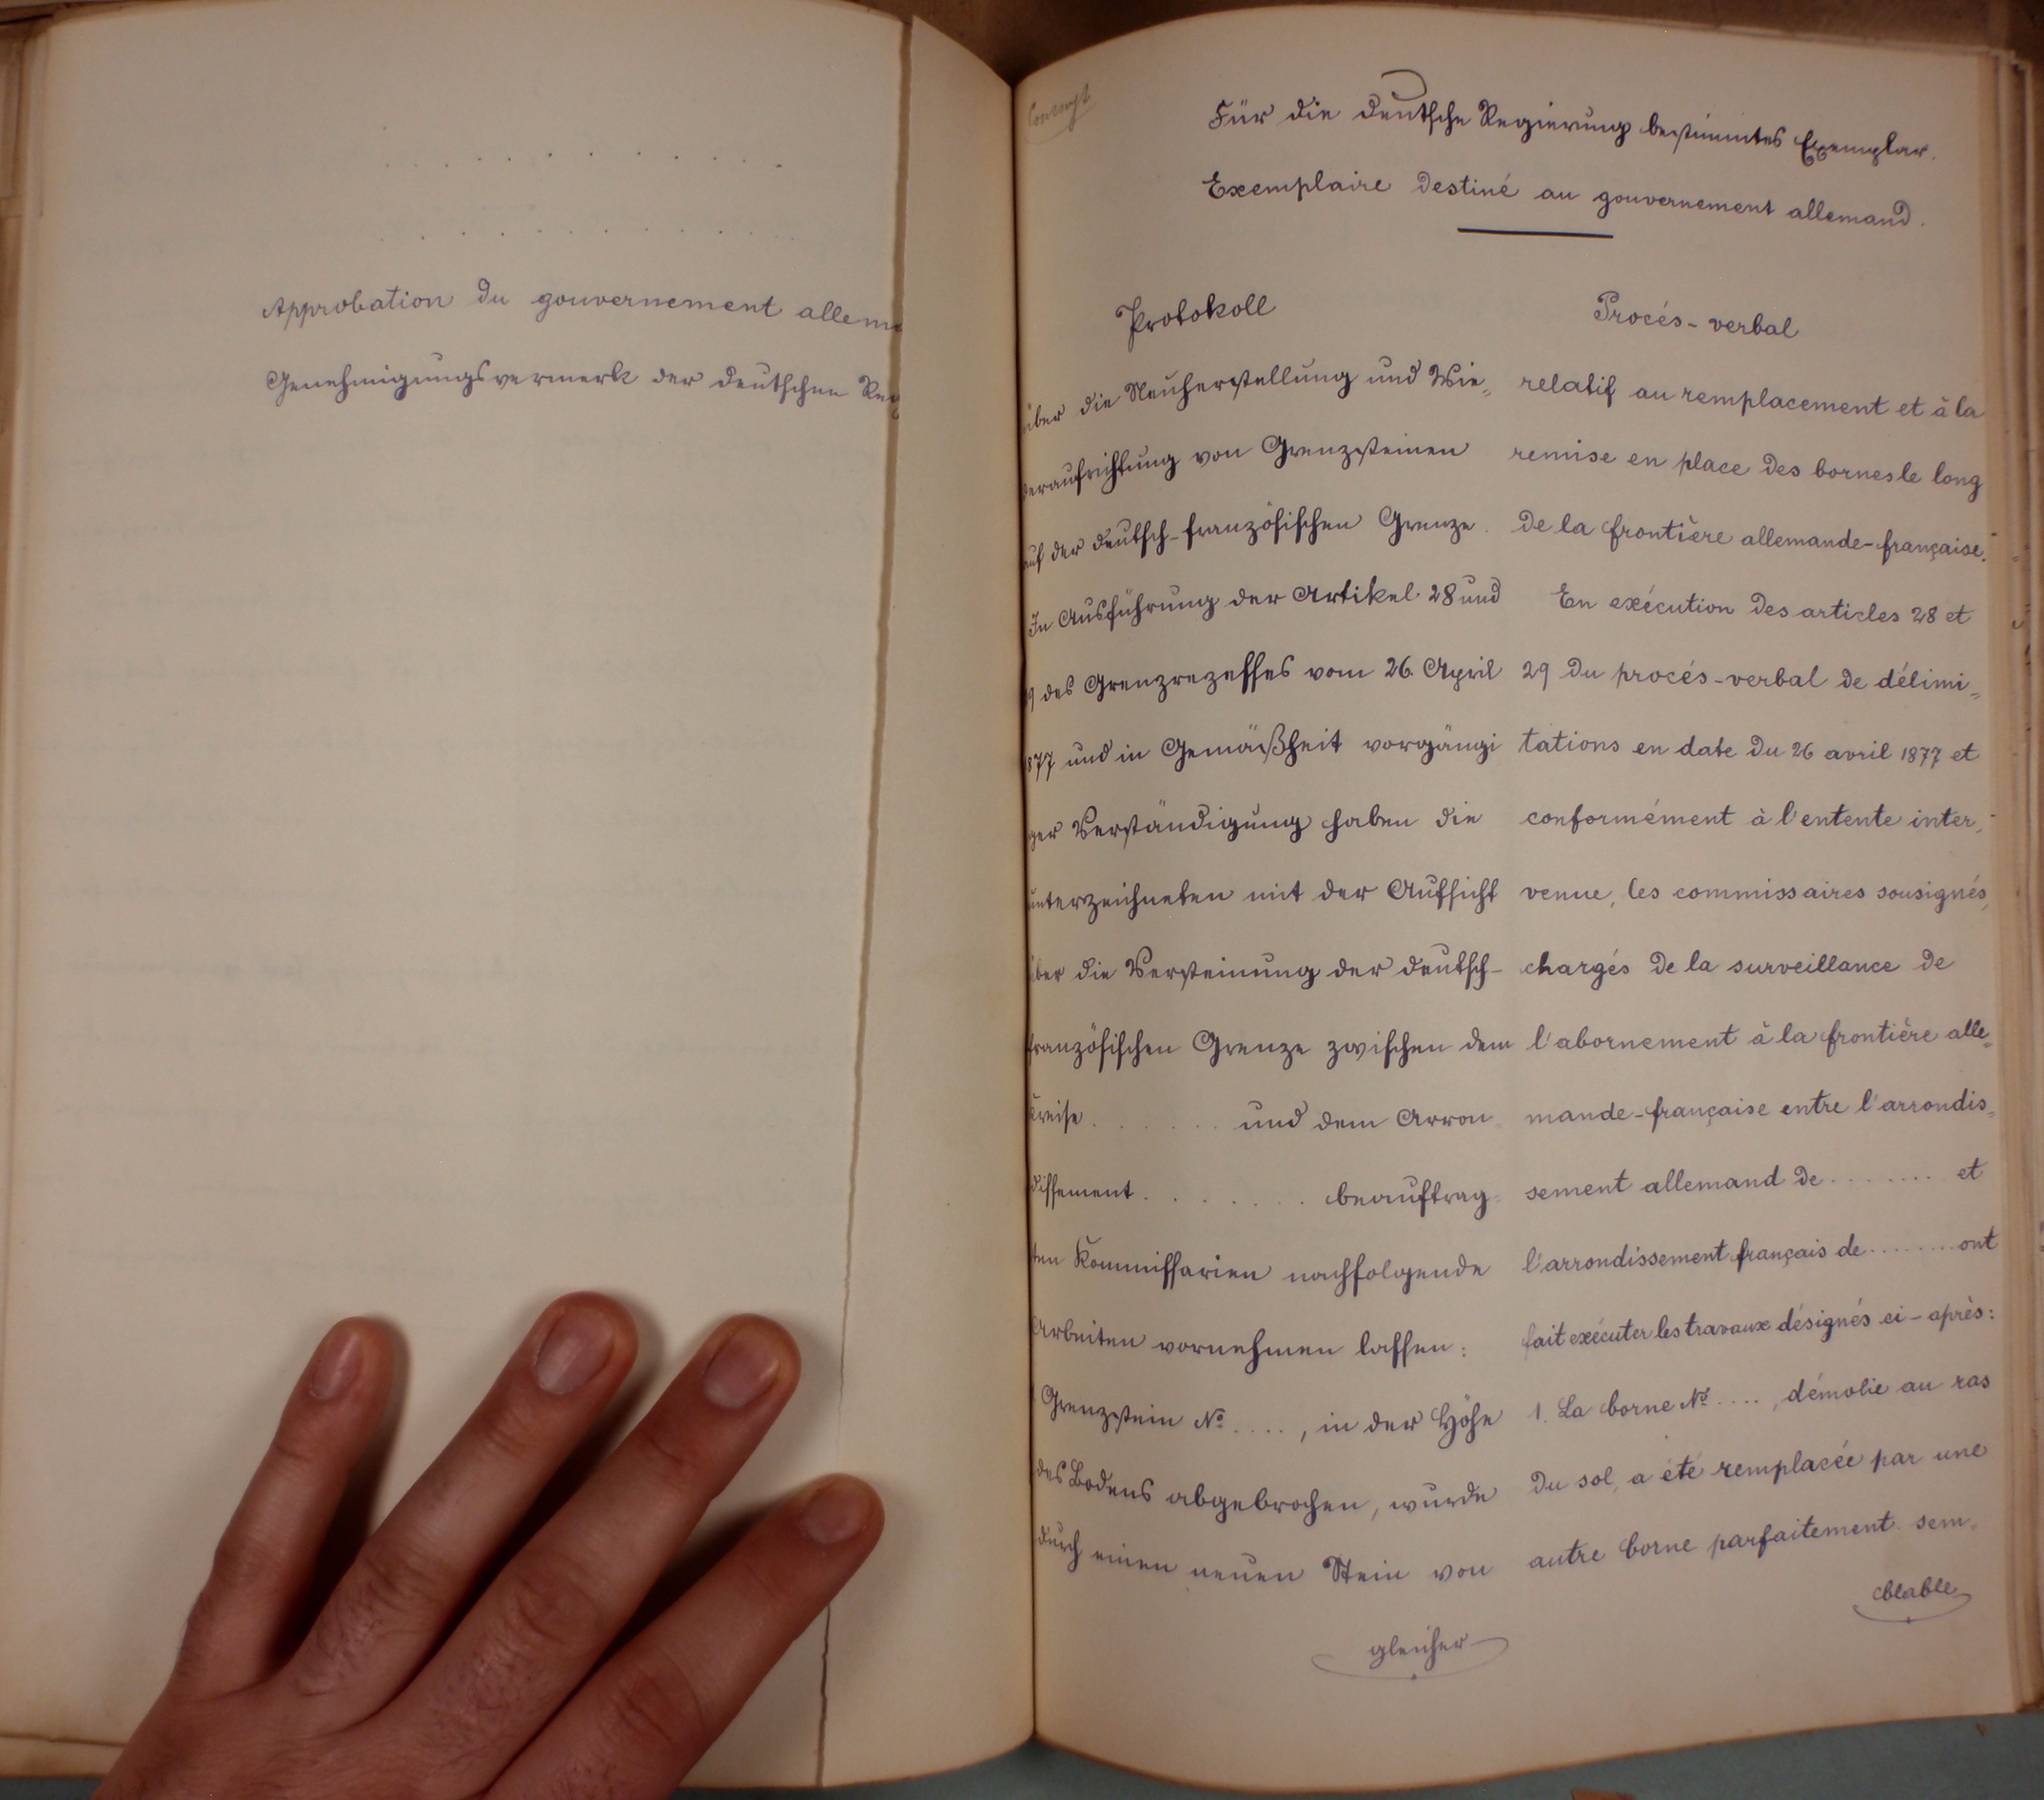 . . . . . . . . . . . . .
. . . . . . . . . . . . .
Approbation du gouvernement allem
Genehmigungsvermerk der deutschen Reg
Für die deutsche Regierung bestimmtes Exemplar.
Exemplaire destiné au gouvernement allemand.
Protokoll
über die Neuherstellung und Wie„
deraufrichtung von Grenzsteinen
auf der deutsch-französischen Grenze.
In Ausführung der Artikel 28 und
29 des Grenzrezesses vom 26. April
1877 und in Gemäßheit vorgängi
ger Verständigung haben die
unterzeichneten mit der Aufsicht
über die Versteinung der deutsch-
französischen Grenze zwischen dem
Kreise . . . . . . . und dem Arron„
dissement . . . . . . . . beauftrag„
ten Kommissarien nachfolgende
Arbeiten vornehmen lassen:
Grenzstein No. . . . ., in der Höhe
des Bodens abgebrochen, wurde
durch einen neuen Stein von
gleicher
Procés-verbal
relatif au remplacement et à la
remise en place des bornes le long
de la frontière allemande-française.
En exécution des articles 28 et
29 du procés-verbal de délimi„
tations en date du 26 avril 1877 et
conformément à l'entente inter„
venue, les commissaires sousignés,
chargés de la surveillance de
l'abornement à la frontière alle„
mande-française entre l'arrondis„
sement allemand de . . . . . . . . et
l'arrondissement français de . . . . . . . . ont
fait exécuter les travaux désignés ci-après:
1. La borne No . . . ., démolie au ras
du sol, a été remplacée par une
autre borne parfaitement sem„
blable